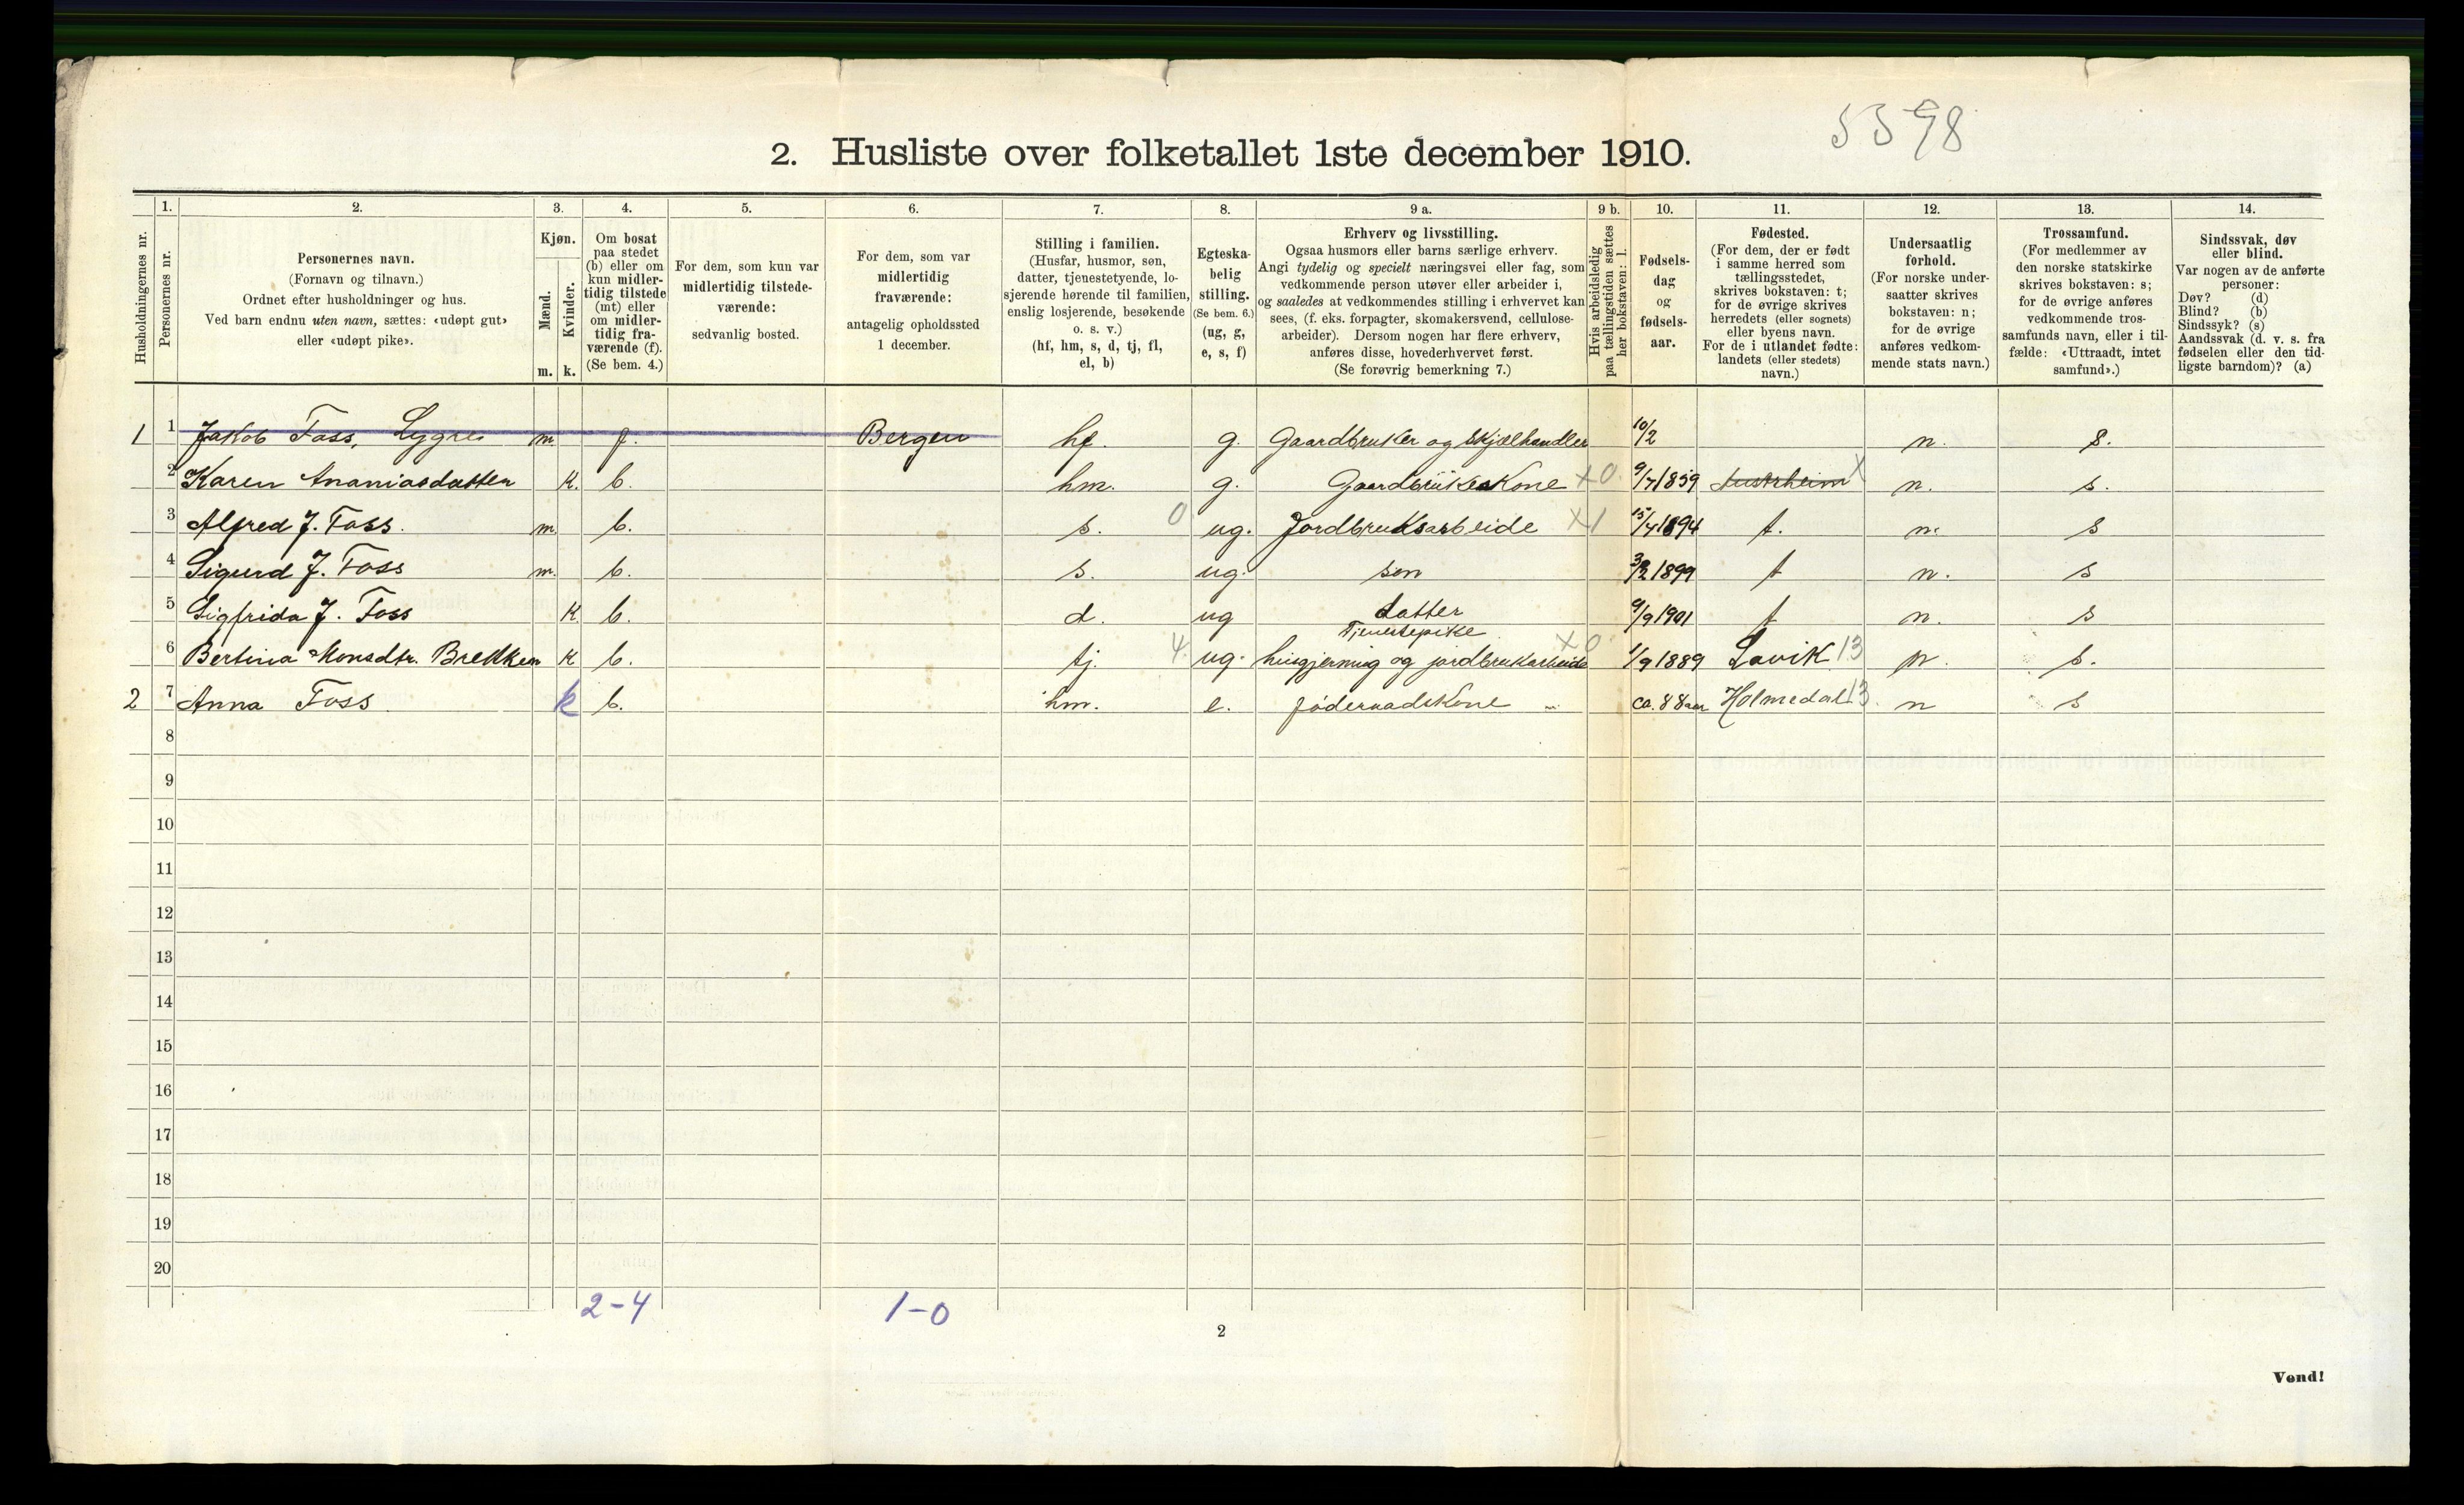 5598
2. Husliste over folketallet 1ste december 1910.
Husholdningernes nr.
1.
Personernes nr.
2.
Personernes navn.
(Fornavn og tilnavn.)
Ordnet efter husholdninger og hus.
Ved barn endnu uten navn, sættes: «udøpt gut»
eller «udøpt pike».
3.
Kjøn.
Mænd.
Kvinder.
m. k.
4.
Om bosat
paa stedet
(b) eller om
kun midler-
tidig tilstede
(mt) eller
om midler-
tidig fra-
værende (f).
(Se bem. 4.)
5.
For dem, som kun var
midlertidig tilstede-
værende:
sedvanlig bosted.
6.
For dem, som var
midlertidig
fraværende:
antagelig opholdssted
1 december.
7.
Stilling i familien.
(Husfar, husmor, søn,
datter, tjenestetyende, lo-
sjerende hørende til familien,
enslig losjerende, besøkende
o. s. v.)
(hf, hm, s, d, tj, fl,
el, b)
8.
Egteska-
belig
stilling.
(Se bem. 6.)
(ug, g,
e, s, f)
9 a.
Erhverv og livsstilling.
Ogsaa husmors eller barns særlige erhverv.
Angi tydelig og specielt næringsvei eller fag, som
vedkommende person utøver eller arbeider i,
og saaledes at vedkommendes stilling i erhvervet kan
sees, (f. eks. forpagter, skomakersvend, cellulose-
arbeider). Dersom nogen har flere erhverv,
anføres disse, hovederhvervet først.
(Se forøvrig bemerkning 7.)
9 b.
Hvis arbeidsledig
paa tællingstiden sættes
her bokstaven: l.
10.
Fødsels-
dag
og
fødsels-
aar.
11.
Fødested.
(For dem, der er født
i samme herred som
tællingsstedet,
skrives bokstaven: t;
for de øvrige skrives
herredets (eller sognets)
eller byens navn.
For de i utlandet fødte:
landets (eller stedets)
navn.)
12.
Undersaatlig
forhold.
(For norske under-
saatter skrives
bokstaven: n;
for de øvrige
anføres vedkom-
mende stats navn.)
13.
Trossamfund.
(For medlemmer av
den norske statskirke
skrives bokstaven: s;
for de øvrige anføres
vedkommende tros-
samfunds navn, eller i til-
fælde: «Uttraadt, intet
samfund».)
14.
Sindssvak, døv
eller blind.
Var nogen av de anførte
personer:
Døv? (d)
Blind? (b)
Sindssyk? (s)
Aandssvak (d. v. s. fra
fødselen eller den tid-
ligste barndom)? (a)
1 1 Jakob Foss, Lygre m. f. Bergen hf. g. Gaardbruker og Skjælhandler 10/2 n. s.
2 Karen Ananiasdatter k. b. hm. g. Gaardbrukeskone x0 9/7 1859 Austrheim x n. s.
3 Alfred J. Foss. m b. s. 0 ug. Jordbruksarbeide x1 15/4 1894 t. n. s
4 Sigurd J. Foss m. b. s. ug. søn 3/2 1899 t n. s
5 Sigfrida J. Foss k b. d. ug datter 9/9 1901 t n. s
6 Bertina Monsdtr. Brekken k b. tj. 4 ug. Tjenestepike
husgjerning og jordbruksarbeide x0 1/9 1889 Lavik 13 n. s.
2 7 Anna Foss k b. hm. e. føderaadskone ca. 88 aar Holmedal 13. n s
8
9
10
11
12
13
14
15
16
17
18
19
20
2-4 1-0
2
Vend!